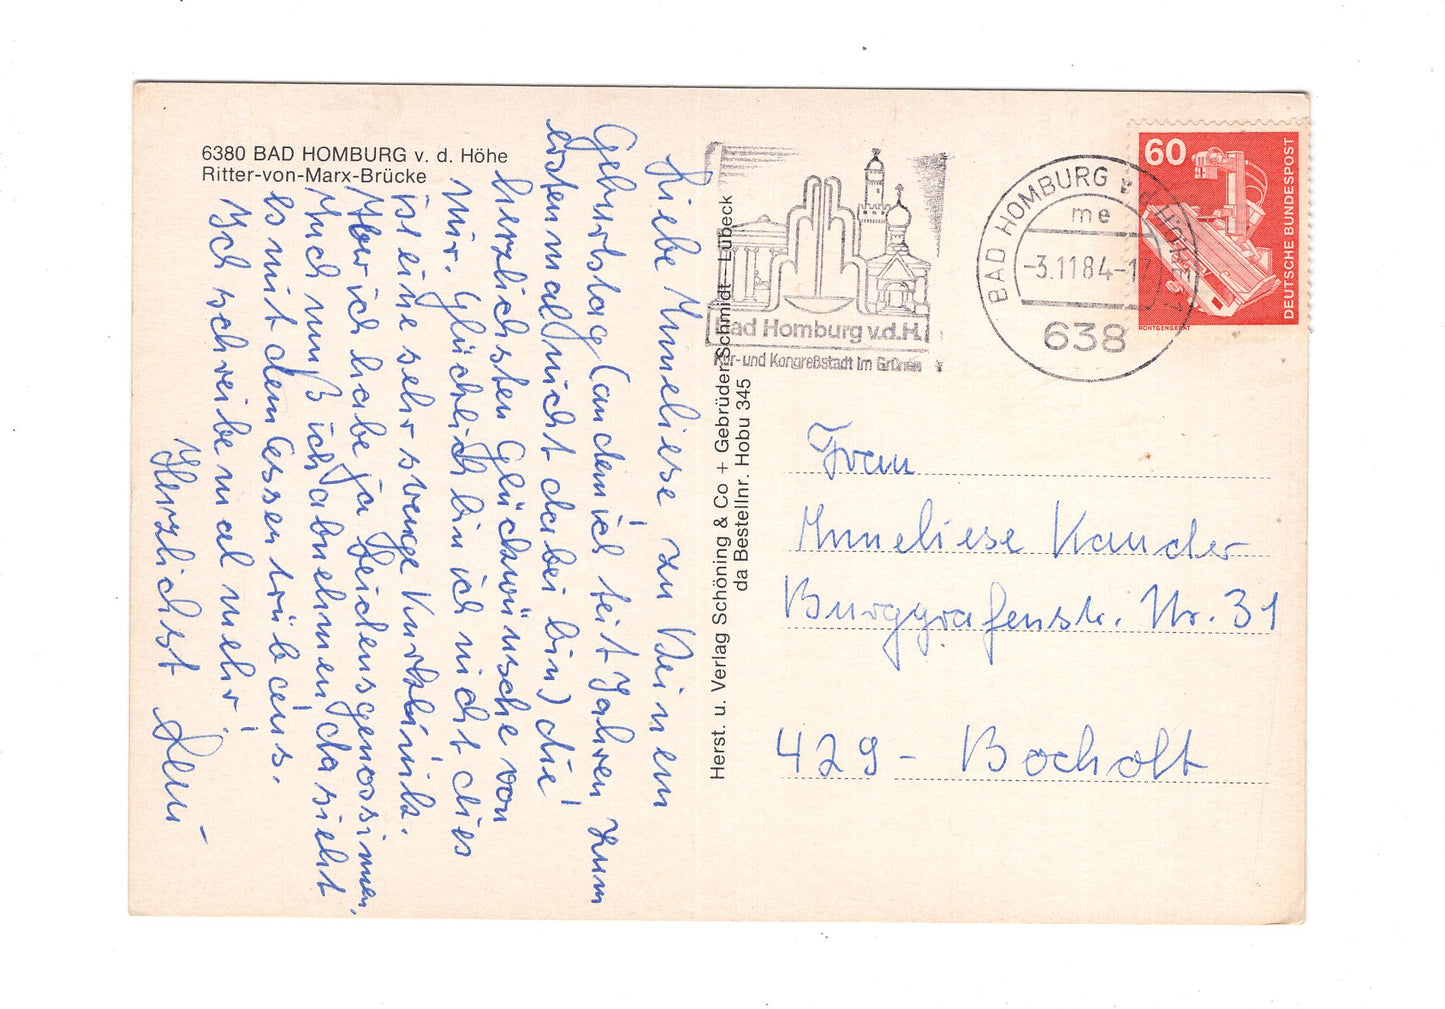 6380 BAD HOMBURG v. d. Höhe
Ritter-von-Marx-Brücke
Liebe Anneliese, zu Deinem
Geburtstag (an dem ich seit Jahren zum
ersten mal nicht dabei bin) die
herzlichsten Glückwünsche von
mir. Glücklich bin ich nicht, dies
ist eine sehr strenge Kurklinik.
Aber ich habe ja Leidensgenossinnen,
Auch muß ich abnehmen, da sieht
es mit dem Essen trüb aus.
Ich schreibe mal mehr!
Herzlichst
Herst. u. Verlag Schöning & Co + Gebrüder Schmidt - Lübeck
da Bestellnr. Hobu 345
Bad Homburg v.d.H.
Kur- und Kongreßstadt im Grünen
BAD HOMBURG v d HÖHE 1
me
-3.11.84-17
638
60
DEUTSCHE BUNDESPOST
RÖNTGENGERÄT
Frau
Anneliese Kander
Burggrafenstr. Nr. 31
429 - Bocholt